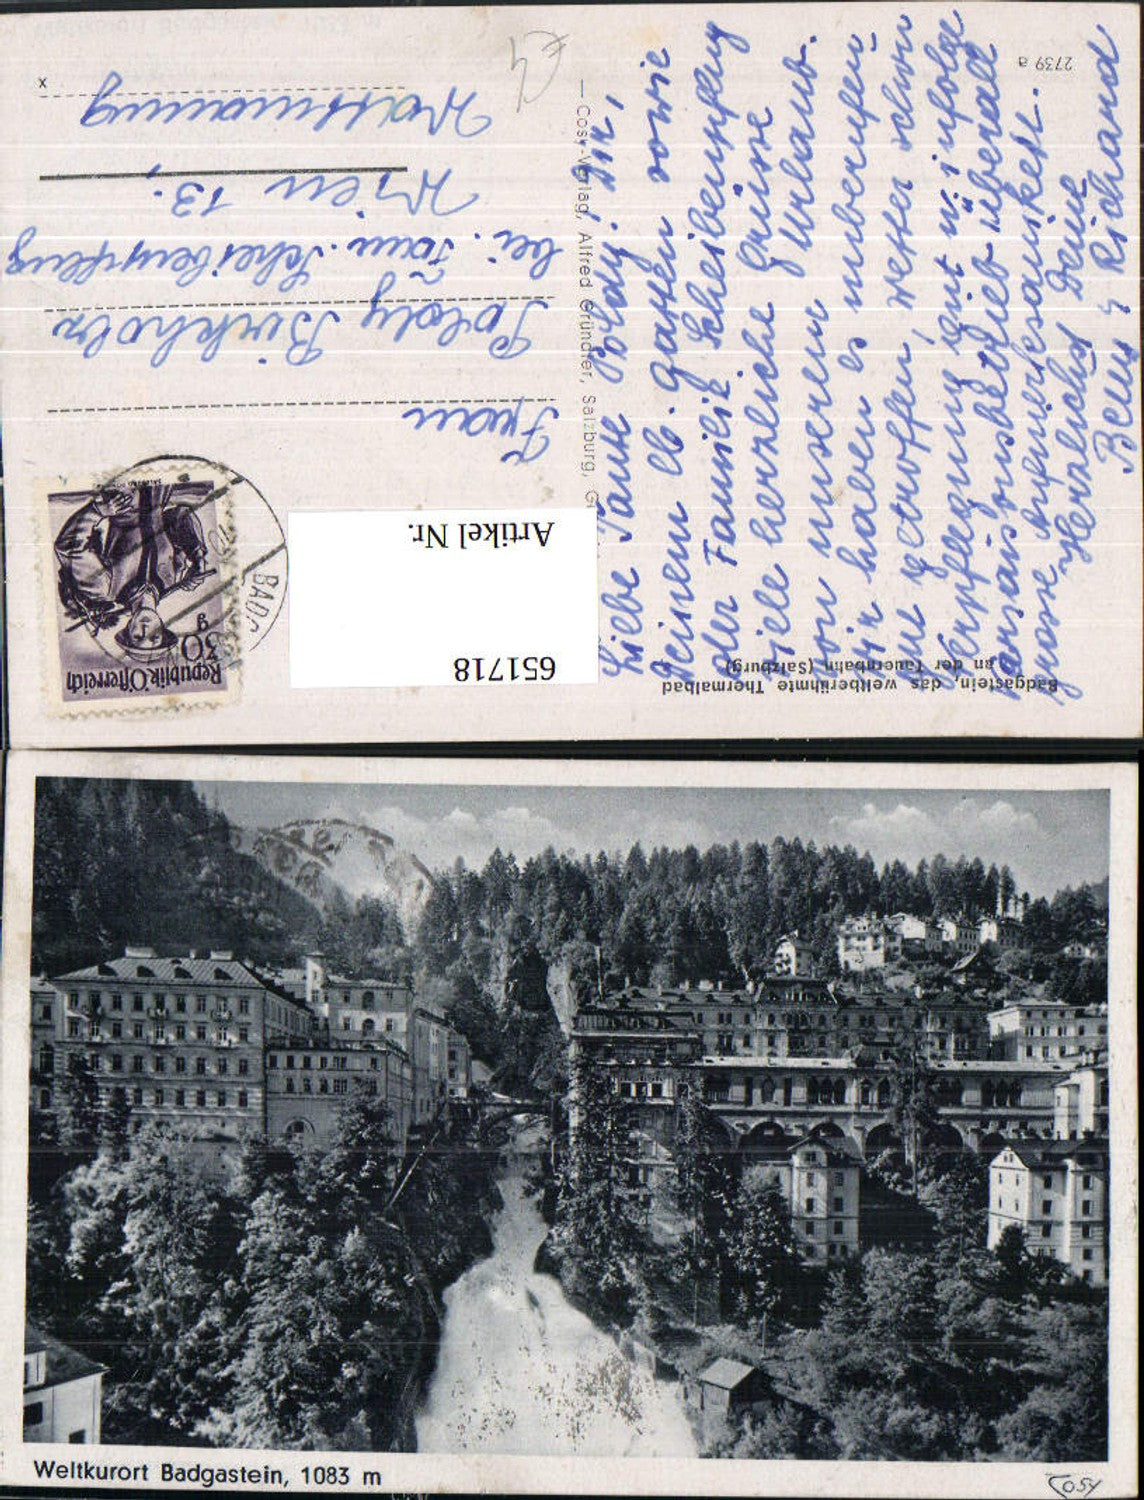 Liebe Tante Poldy! Dir,
Deinem lb. Gatten sowie
der Familie Scheibenpflug
viele herzliche Grüsse
von unserem Urlaub.
Wir haben es unberufen
gut getroffen, Wetter schön
Verpflegung gut u. infolge
Versaisonsbetrieb überall
grosse Aufmerksamkeit.
Herzlichst Deine
Beny & Richard
Frau
Poldy Birkholz
bei: Fam. Scheibenpflug
Wien 13.,
x
2739 a
Cosy-Verlag, Alfred Gründler, Salzburg, G
Badgastein, das weltberühmte Thermalbad
an der Tauernbahn (Salzburg)
Republik Österreich
30
g
BADG
Artikel Nr.
651718
Weltkurort Badgastein, 1083 m
COSY